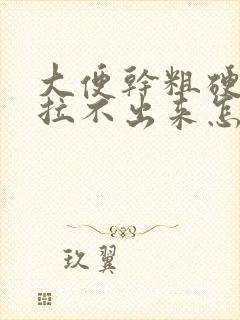 大便幹粗硬
拉不出来怎
玖翼